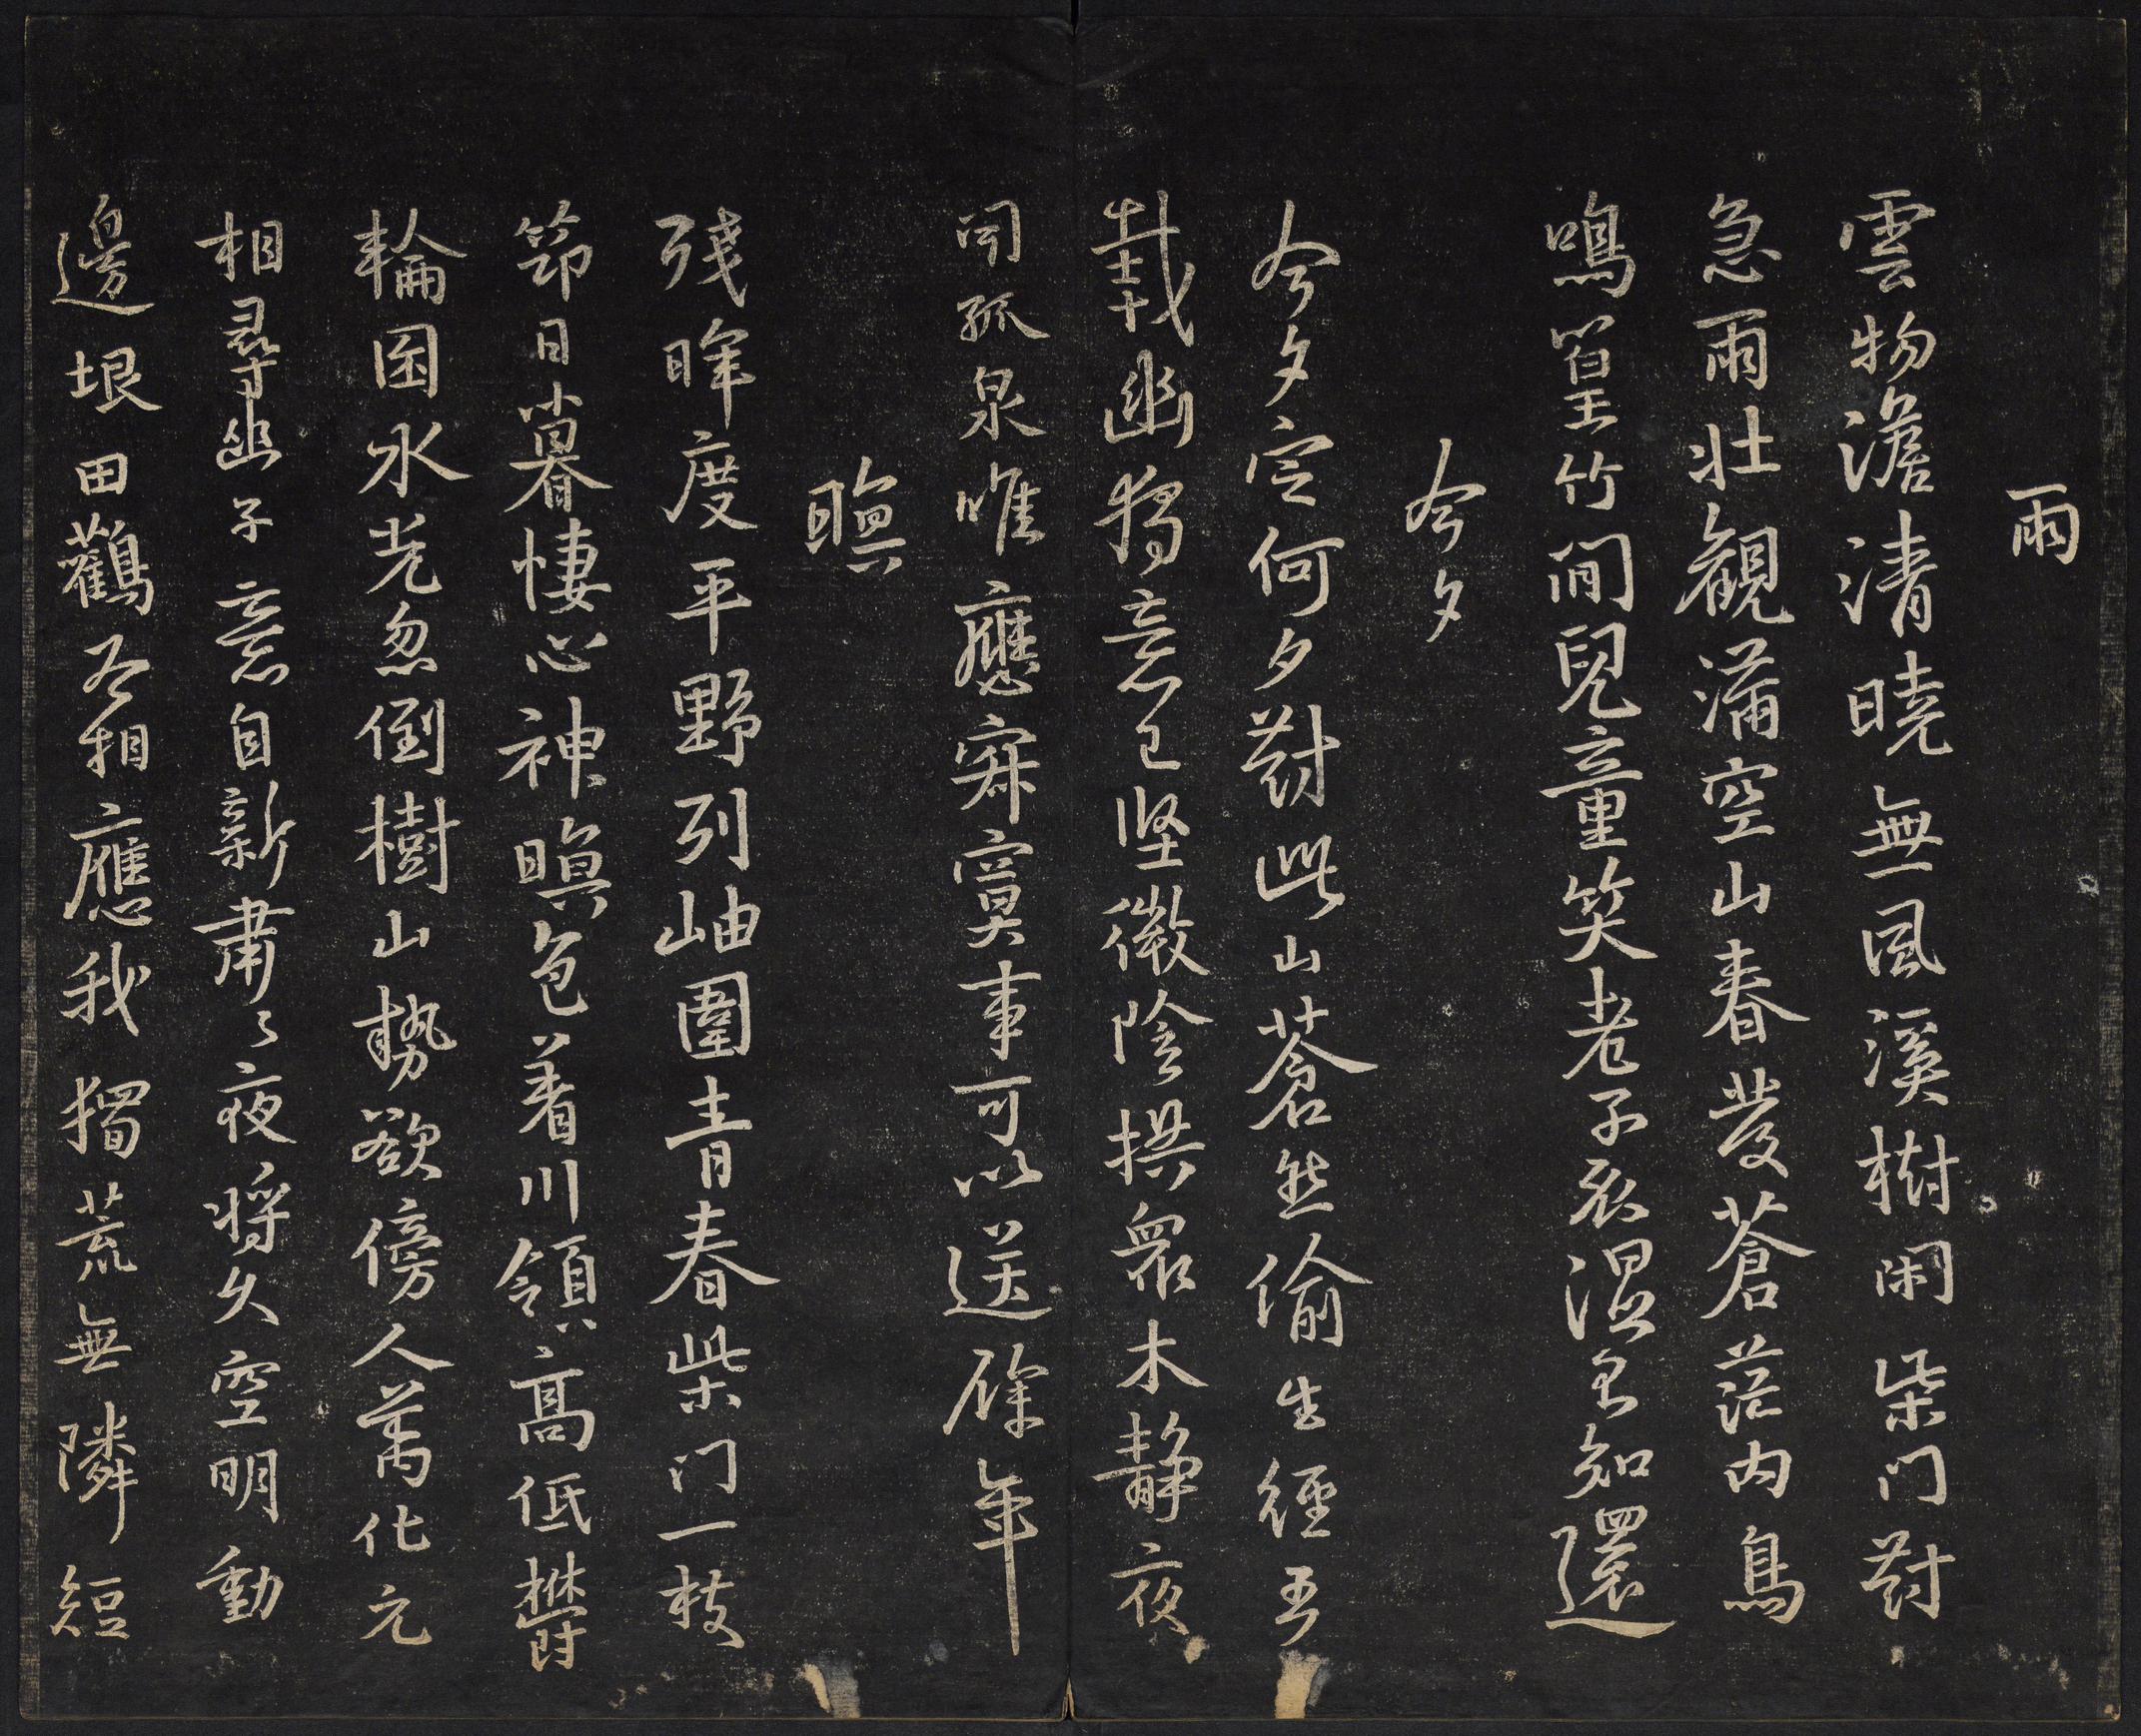 雨
雲物澹清曉無風溪樹閑柴門對
急雨壯觀滿空山春發蒼茫内鳥
鳴篁竹間兒童笑老子衣濕不知還
今夕
今夕定何夕對此山蒼然偷生經五
載幽獨意已堅微陰拱衆木静夜
聞孤泉唯應寂寞事可以送餘年
暝
殘暉度平野列岫圍青春柴门一枝
筇日暮悽心神暝色著川領高低鬱
輪囷水光忽倒樹山勢欲傍人萬化元
相尋幽子意自新肅々夜將久空明動
邊垠田鸛不相應我獨荒無隣短